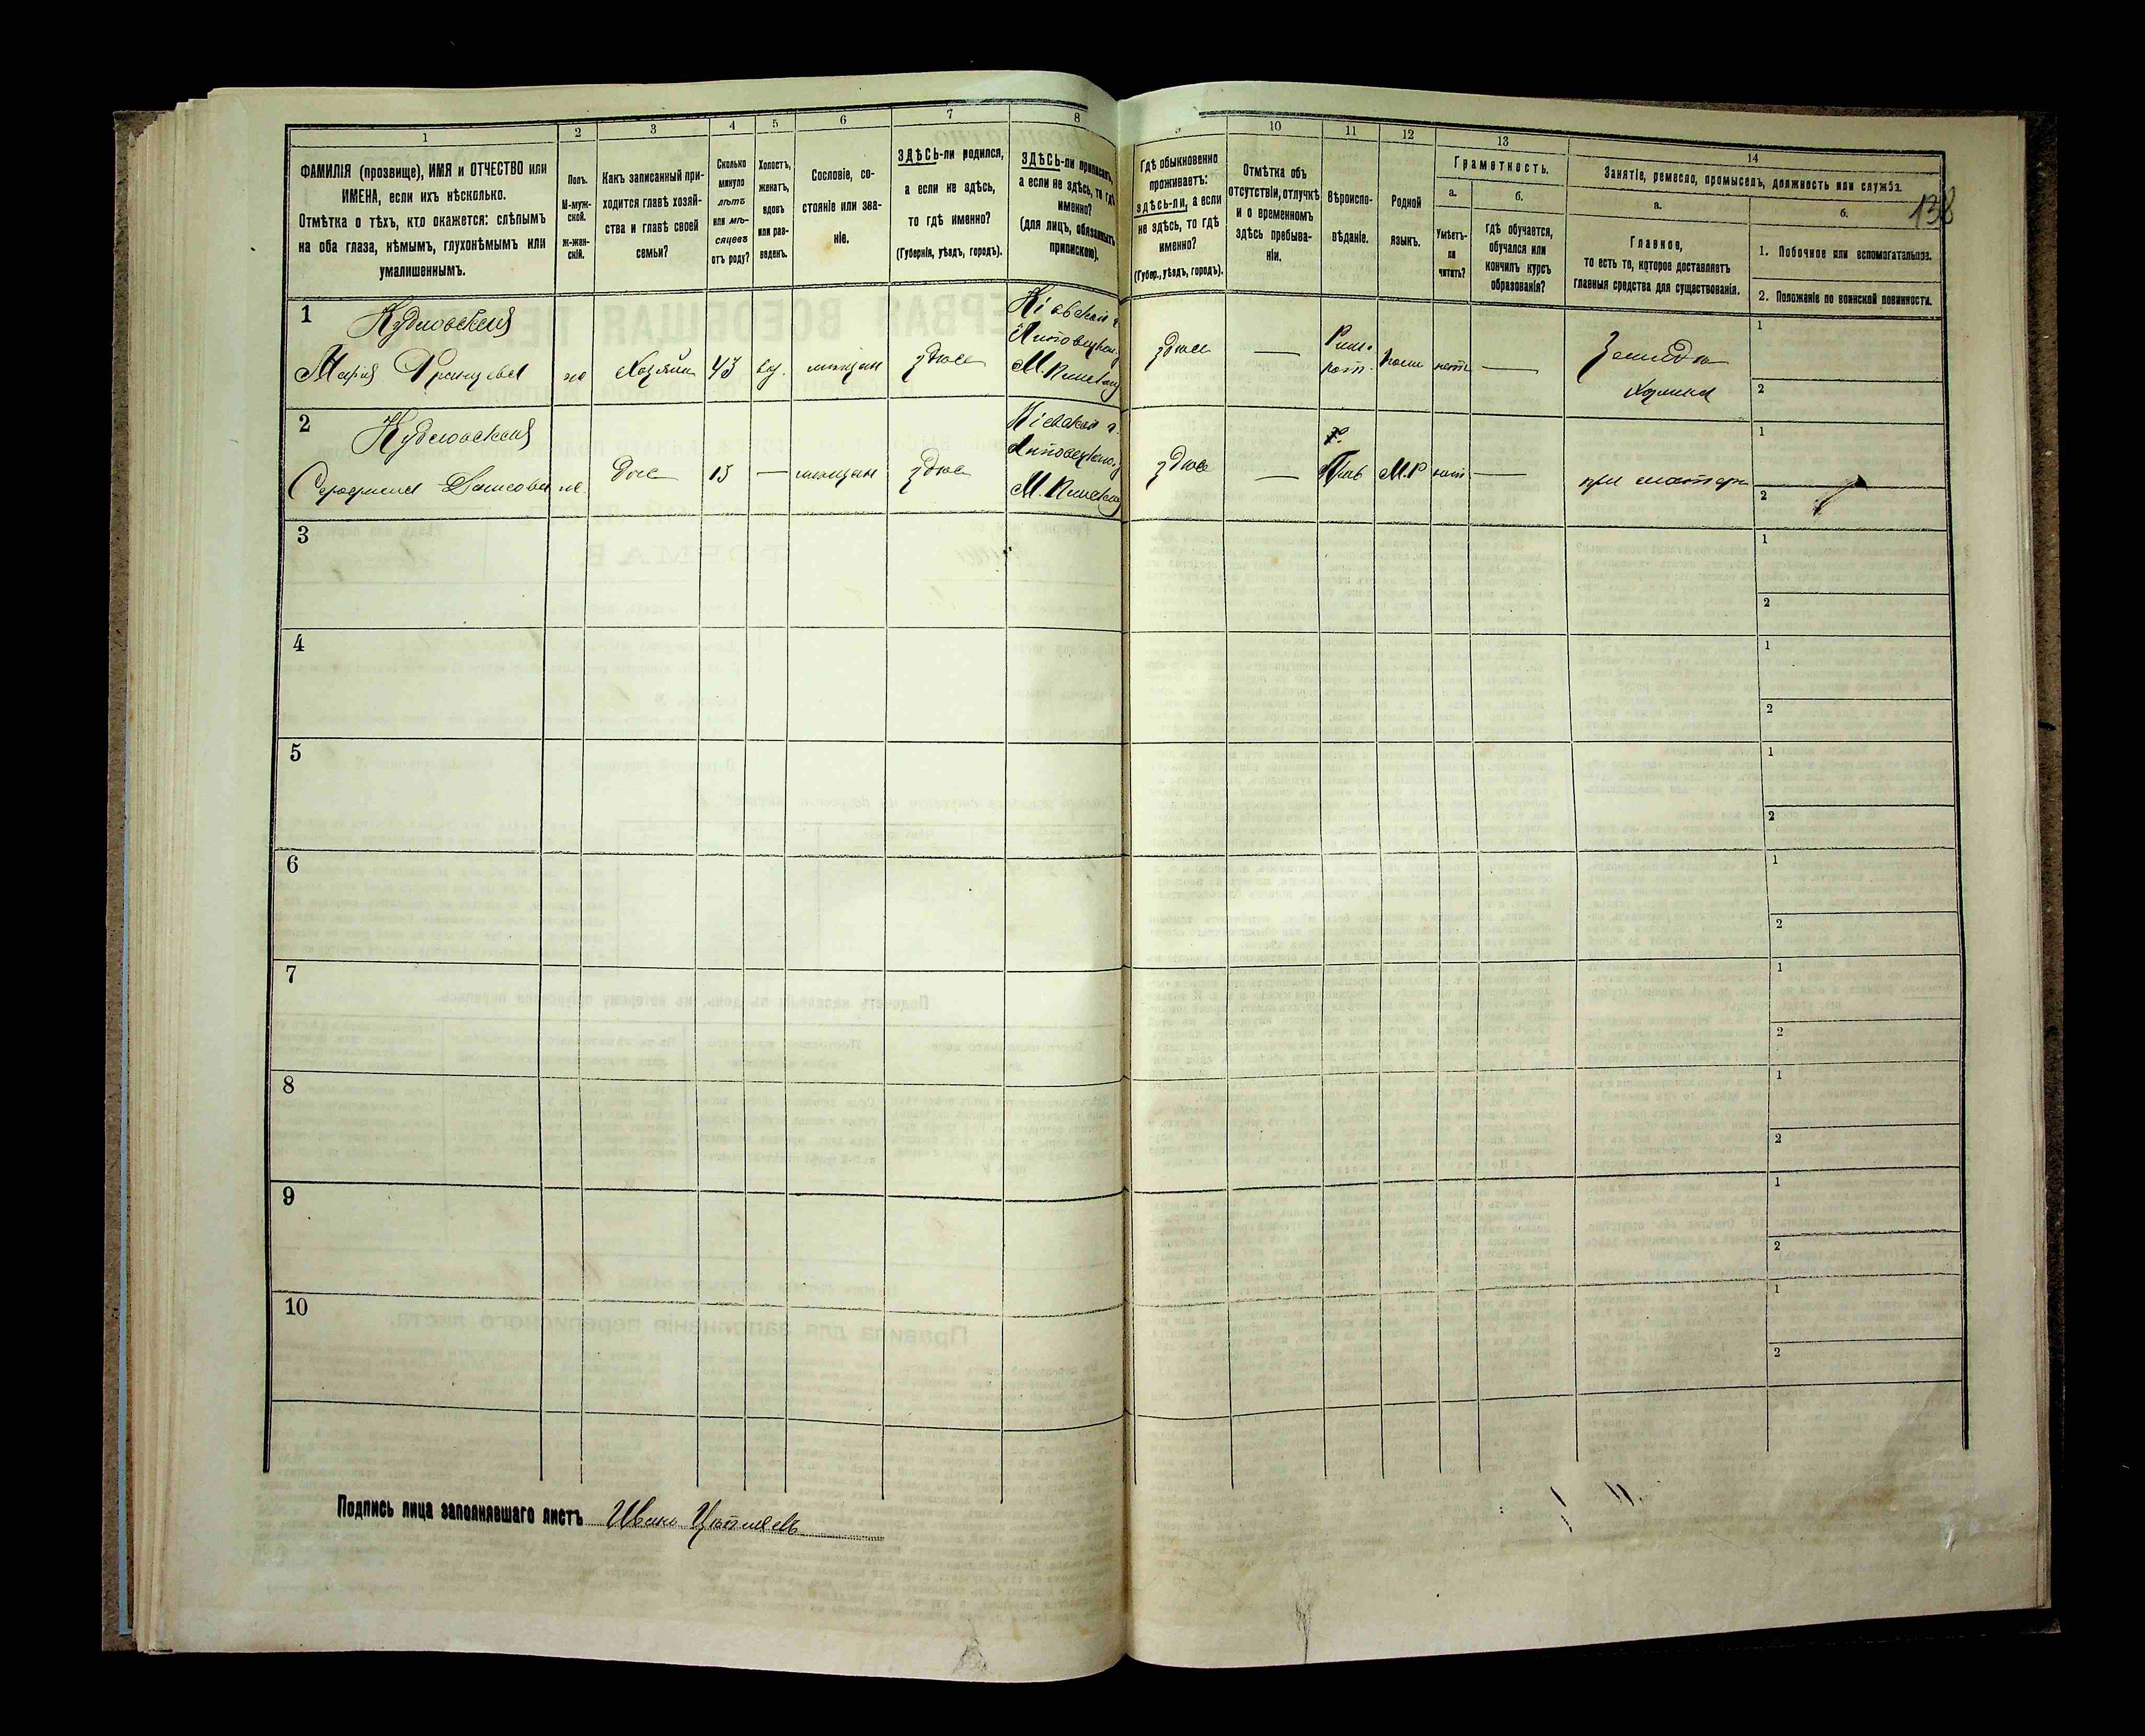 1
2
3
4
5
6
7
8
9
10
11
12
13
14
138
ФАМИЛІЯ (прозвище), ИМЯ и ОТЧЕСТВО или
ИМЕНА, если ихъ нѣсколько.
Отмѣтка о тѣхъ, кто окажется: слѣпымъ
на оба глаза, нѣмымъ, глухонѣмымъ или
умалишеннымъ.
Полъ.
М-муж-
ской.
ж-жен-
скій.
Какъ записанный при-
ходится главѣ хозяй-
ства и главѣ своей
семьи?
Сколько
минуло
лѣтъ
или мѣ-
сяцевъ
отъ роду?
Холостъ,
женатъ,
вдовъ
или раз-
веденъ.
Сословіе, со-
стояніе или зва-
ніе.
ЗДѢСЬ-ли родился,
а если не здѣсь,
то гдѣ именно?
(Губернія, уѣздъ, городъ).
ЗДѢСЬ-ли приписанъ,
а если не здѣсь, то гдѣ
именно?
(для лицъ, обязанныхъ
припискою).
Гдѣ обыкновенно
проживаетъ:
здѣсь-ли, а если
не здѣсь, то гдѣ
именно?
(Губер., уѣздъ, городъ).
Отмѣтка объ
отсутствіи, отлучкѣ
и о временномъ
здѣсь пребыва-
ніи.
Вѣроиспо-
вѣданіе.
Родной
языкъ.
Грамотность.
а.
Умѣетъ-
ли
читать?
б.
гдѣ обучается,
обучался или
кончилъ курсъ
образованія?
Занятіе, ремесло, промыселъ, должность или служба.
а.
Главное,
то есть то, которое доставляетъ
главныя средства для существованія.
б.
1. Побочное или вспомогательное.
2. Положеніе по воинской повинности.
1
Марія Францева
хозяйн
43
вд.
мѣщан
здюсь
Кіевской г.
Липовецкаго
здюсь
—
Римо
кат.
нет
—
хозяика
1
2
2
13
—
мѣщан
здюсь
Кіевской г.
Липовецкаго
здюсь
—
М.Р
нет
—
при матери
1
2
3
1
2
4
1
2
5
1
2
6
1
2
7
1
2
8
1
2
9
1
2
10
1
2
Подпись лица заполнявшаго листъ Иванъ